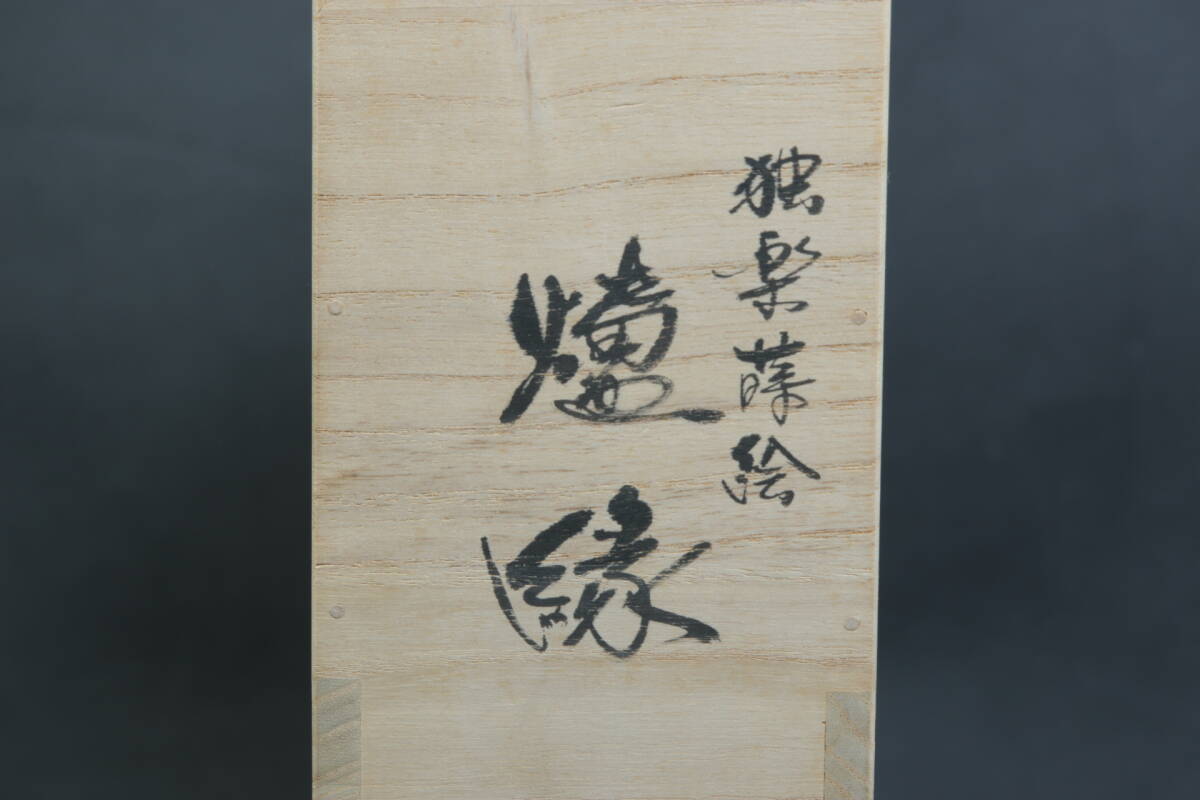 独楽蒔絵
爐縁